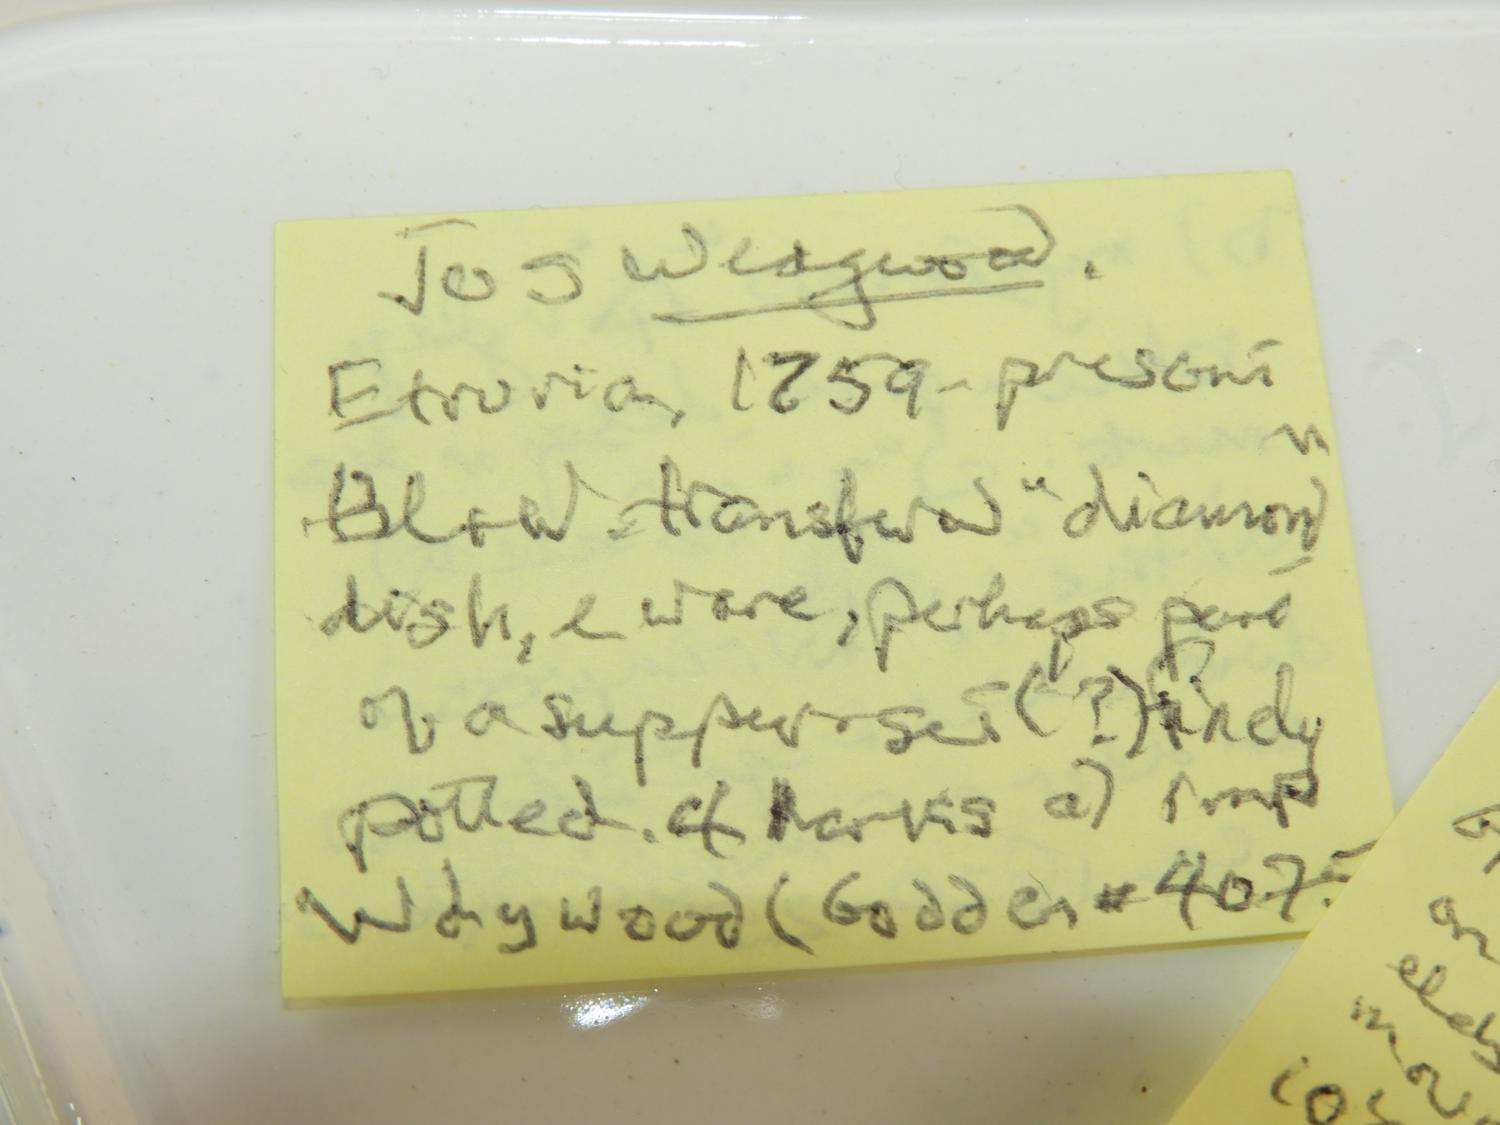 Jos Wedgwood.
Etruria, 1759-present
Bl + W transferred "diamond"
dish, e ware, perhaps part
of a supper-set (?) finely
potted. Marks a) imp
Wdgwood (Godden # 4075